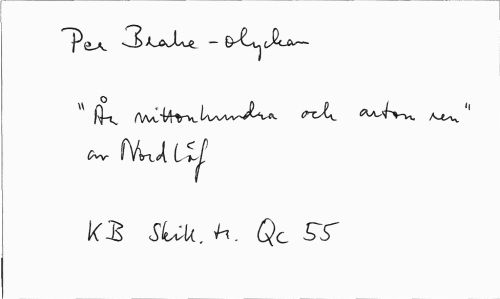 Per Brahe-olyckan
"År nittonhundra och arton ren"
av Nord Låf
KB Skill. tr. Qc 55